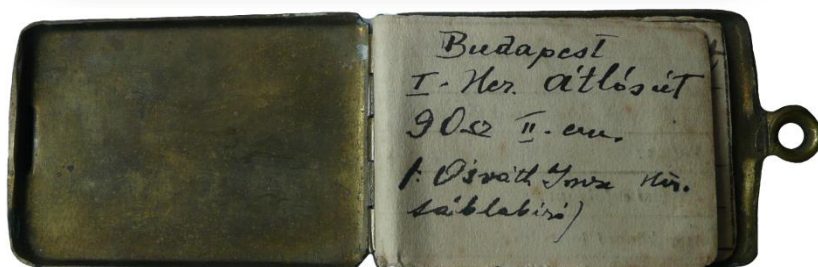 Budapest
I. Ker. átlós út
90sz II. em.
Osváth Imre kir.
táblabiró)